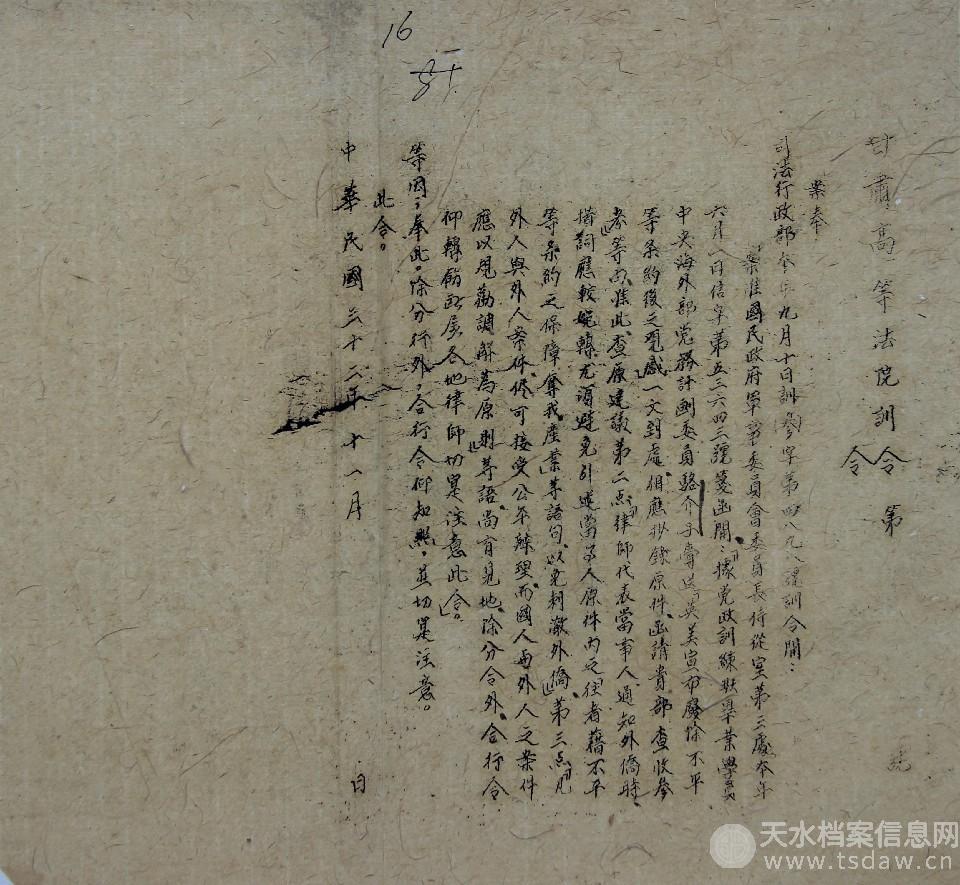 16
甘肅高等法院訓令 令 第 號
案奉
司法行政部本年九月十日訓(參)字第四八九八號訓令開：
案准國民政府軍事委員會委員長侍從室第三處本年
六月一日信字第五三六四三號箋函開：據党政訓練班畢業學員
中央海外部党務計劃委員駱介子寄送英美宣布廢除不平
等条約後之觀感一文到處相應抄錄原件函請貴部查收參
考等由准此查原建議第二点律師代表當事人通知外僑時
措詞應較婉轉尤須避免引述當事人原件内之往者藉不平
等条約之保障奪我產業等語句以免刺激外僑第三点凡
外人與外人案件終可接受公平辦理而國人与外人之案件
應以規勸調解為原則等語尚有見地除分令外合行令
仰轉飭所屬各地律師切実注意此令。
等因；奉此。除分行外，合行令仰知照，並切実注意。
此令。
中華民國三十二年十一月 日
天水档案信息网
www.tsdaw.cn